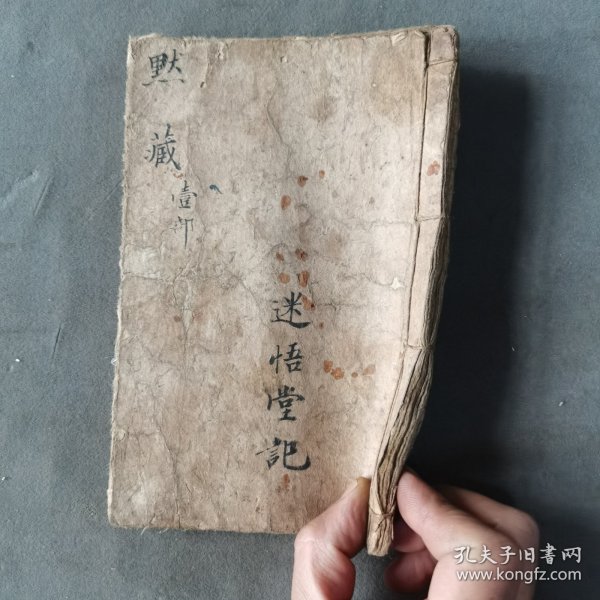 默藏
壹卯
迷悟堂記
孔夫子旧書网
www.kongfz.com